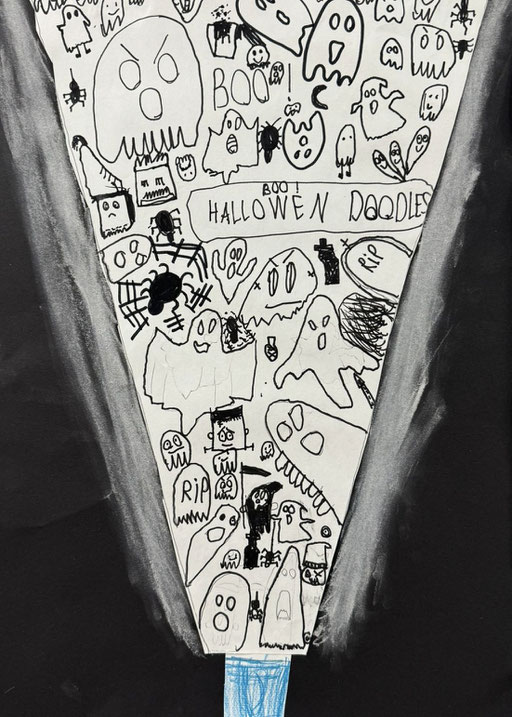 BOO
BOO!
HALLOWEN DOODLES
RIP
RIP